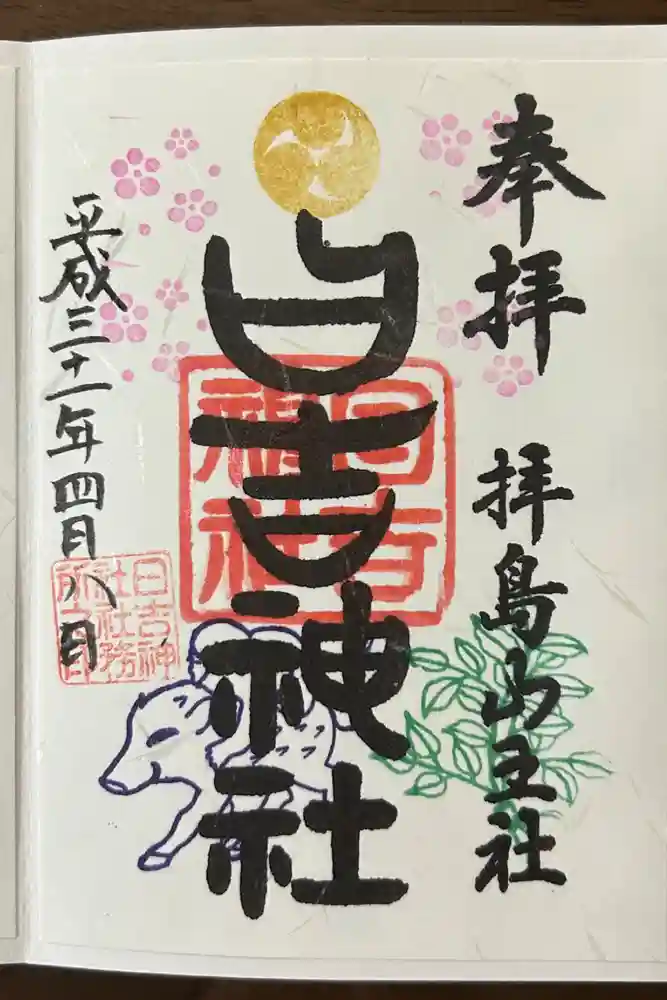 奉拝 拝島山王社
日吉神社
日吉
神社
平成三十一年四月八日
日吉神
社社務
所之印